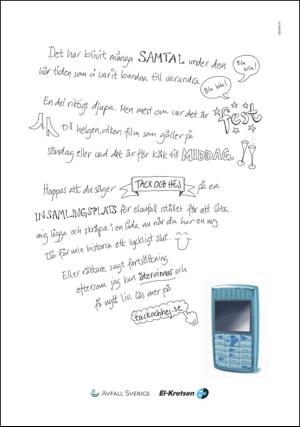 Det har blivit många SAMTAL under den
Bla bla!
Bla bla!
vår tiden som vi varit bundna till varandra.
En del riktigt djupa. Men mest om var det är fest
till helgen, vilken film som gäller på
söndag eller vad det är för käk till MIDDAG.
Hoppas att du säger TACK OCH HEJ på en
INSAMLINGSPLATS för elavfall istället för att låta
mig ligga och skräpa i en låda nu när du har en ny.
Då får min historia ett lyckligt slut.
Eller rättare sagt fortsättning
eftersom jag kan återvinnas och
få nytt liv. Läs mer på
tackochhej.se
AVFALL SVERIGE
El-Kretsen